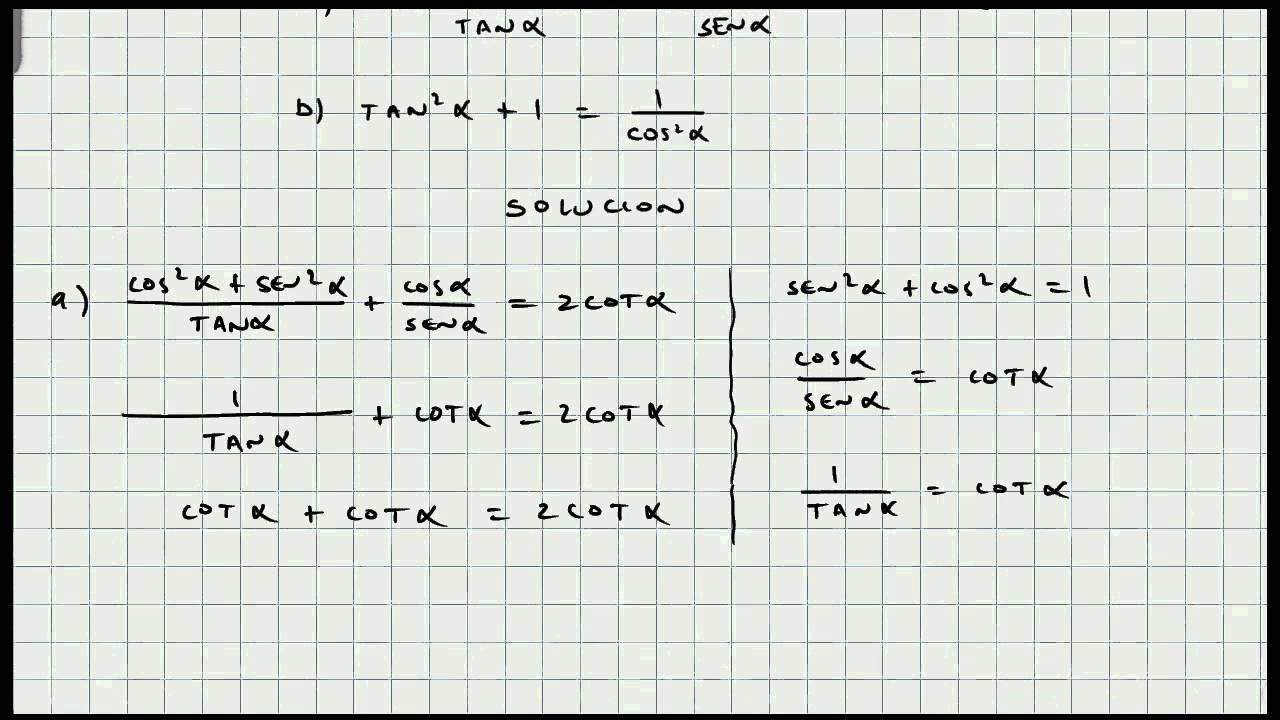 TANα SENα
b) TAN²α + 1 = 1/COS²α
SOLUCION
a) COS²α + SEN²α/TANα + COSα/SENα = 2COTα
1/TANα + COTα = 2COTα
COTα + COTα = 2COTα
SEN²α + COS²α = 1
COSα/SENα = COTα
1/TANα = COTα